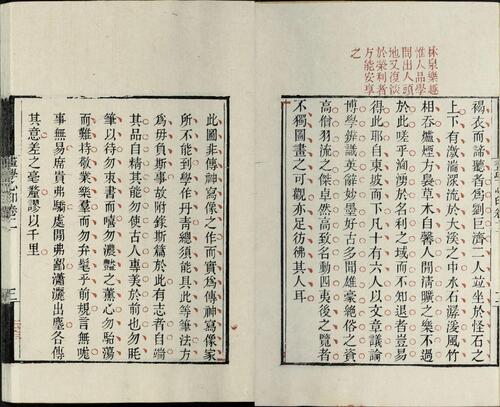 林泉樂趣
惟人品學
問出人頭
地又復淡
於榮利者
方能安享
之
褐衣而諦聽者為劉巨濟二人並坐於怪石之
上下有激湍潨流於大溪之中水石潺湲風竹
相吞爐煙方裊草木自馨人間清曠之樂不過
於此嗟乎洶湧於名利之域而不知退者豈易
得此耶自東坡而下凡十有六人以文章議論
博學辨識英辭妙墨好古多聞雄豪絕俗之資
高僧羽流之傑卓然高致名動四夷後之覽者
不獨圖畫之可觀亦足彷彿其人耳
此圖非傳神寫像之作而實為傳神寫像家
所不能到學作丹青總須能具此等筆法方
為毋負斯事故附錄斯篇於此有志者自端
其品自精其能勿使古人專美於前也勿眊
筆以待勿束書而嘻勿濃豔之薰心勿駘蕩
而難持敬業樂羣而勿弁髦乎前規言無哤
事無易席貴弗驕處閒弗鄙瀟灑出塵各傳
其意差之毫釐謬以千里
畫學心印卷二
三